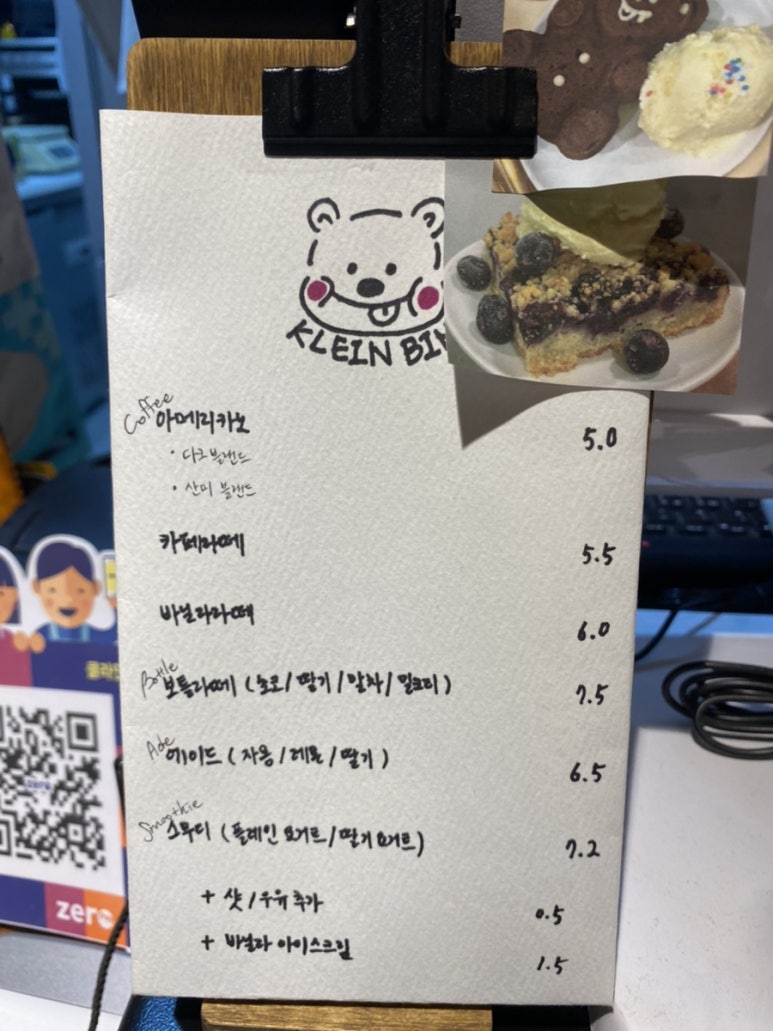 KLEIN
Coffee
아메리카노 5.0
· 다크블랜드
· 산미 블랜드
카페라떼 5.5
바닐라라떼 6.0
Bottle
보틀라떼 (초코/딸기/말차/밀크티) 7.5
Ade
에이드 (자몽/레몬/딸기) 6.5
Smoothie
스무디 (플레인 요거트/딸기요거트) 7.2
+ 샷/우유추가 0.5
+ 바닐라 아이스크림 1.5
zero